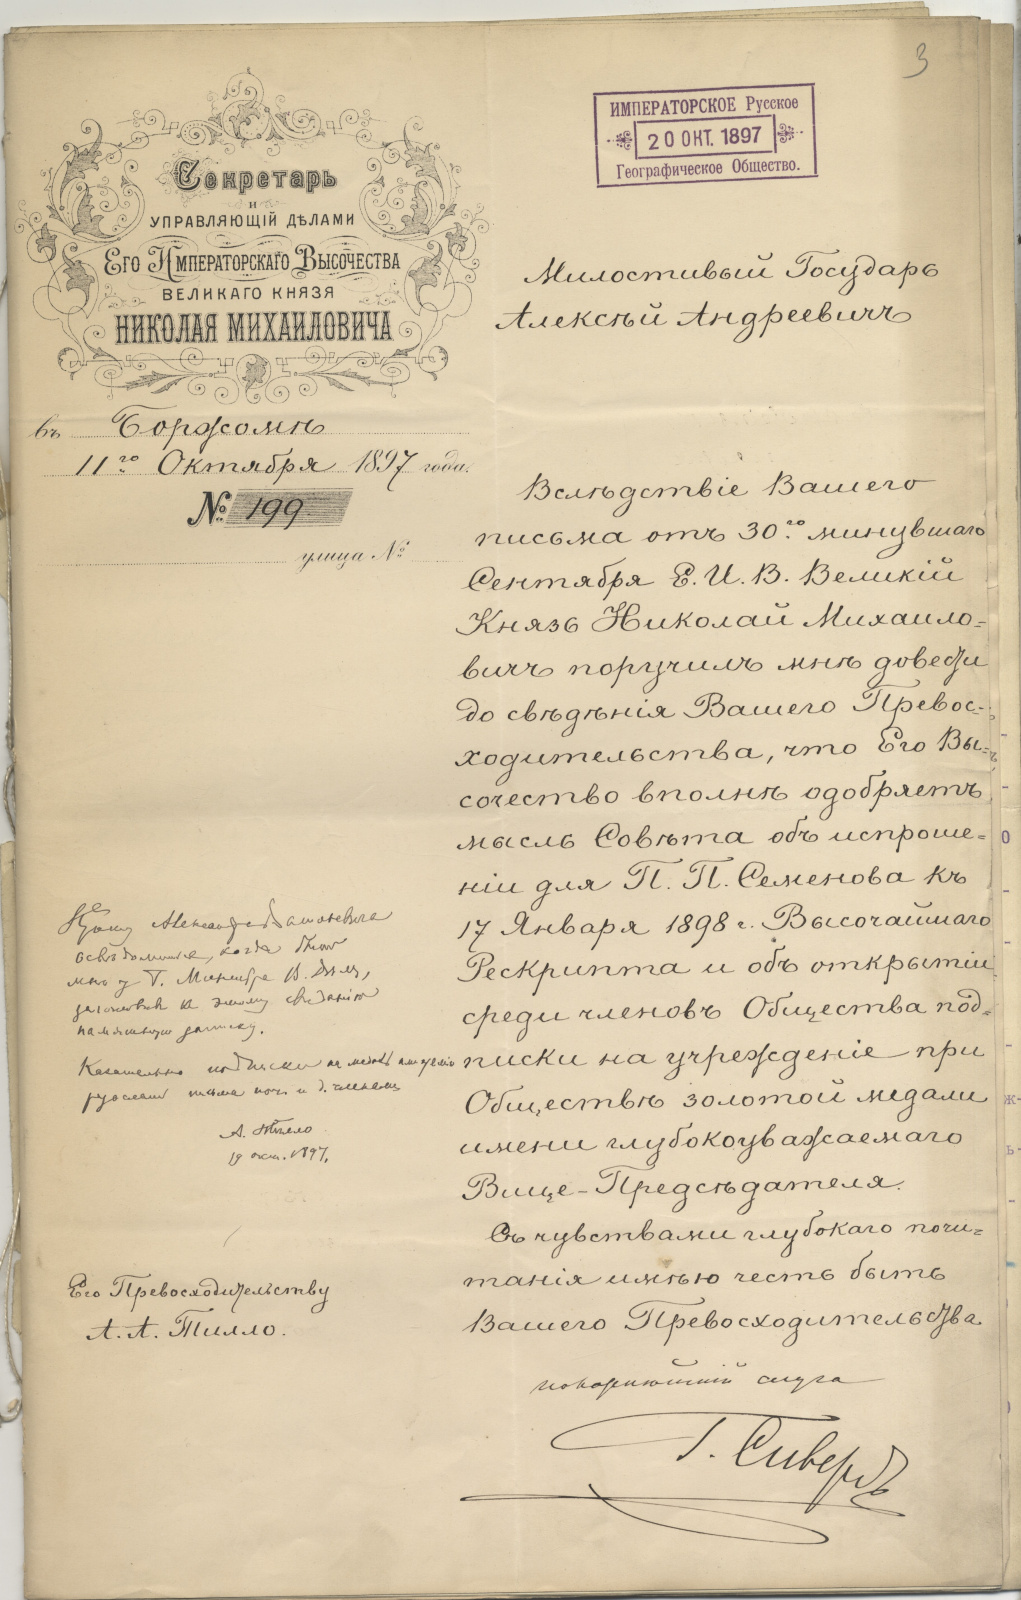 3
ИМПЕРАТОРСКОЕ Русское
20 ОКТ. 1897
Географическое Общество.
Секретарь
и
УПРАВЛЯЮЩІЙ ДѢЛАМИ
Его Императорскаго Высочества
ВЕЛИКАГО КНЯЗЯ
НИКОЛАЯ МИХАИЛОВИЧА
въ Боржомѣ
11го Октября 1897 года.
№ 199
улица №
Милостивый Государь
Алексѣй Андреевичъ
Вслѣдствіе Вашего
письма отъ 30го минувшаго
Сентября Е. И. В. Великій
Князь Николай Михаило=
вичъ поручилъ мнѣ довести
до свѣдѣнія Вашего Превос=
ходительства, что Его Вы=
сочество вполнѣ одобряетъ
мысль Совѣта объ испроше=
ніи для П. П. Семенова къ
17 Января 1898 г. Высочайшаго
Рескрипта и объ открытіи
среди членовъ Общества под=
писки на учрежденіе при
Обществѣ золотой медали
имени глубокоуважаемаго
Вице-Предсѣдателя.
Съ чувствами глубокаго почи=
танія имѣю честь быть
Вашего Превосходительства
покорнѣйшій слуга
Г. Сиверсъ
Прошу Александра
освѣдомиться, когда
у Г. Министра В. Дѣлъ,
къ этому свиданію
памятную записку.
Касательно подписки
А. Тилло
19 окт. 1897.
Его Превосходительству
А. А. Тилло.